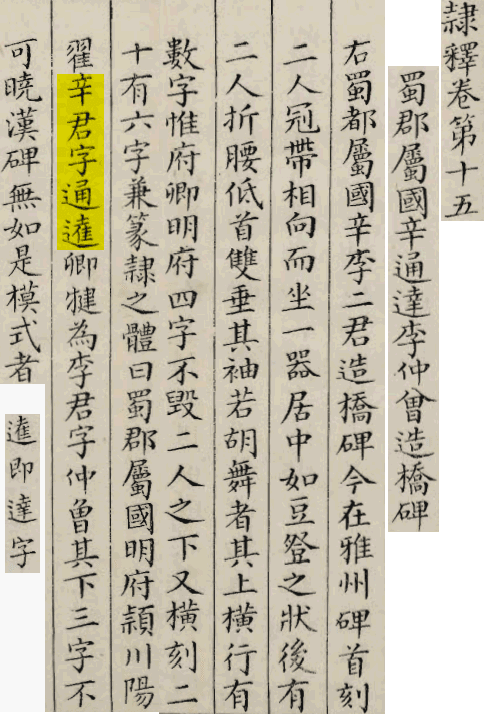 隸釋卷第十五
蜀郡屬國辛通達李仲曾造橋碑
右蜀都屬國辛李二君造橋碑今在雅州碑首刻
二人冠帶相向而坐一器居中如豆登之狀後有
二人折腰低首雙垂其袖若胡舞者其上橫行有
數字惟府卿明府四字不毀二人之下又橫刻二
十有六字兼篆隸之體曰蜀郡屬國明府潁川陽
翟辛君字通卿犍為李君字仲曾其下三字不
可曉漢碑無如是模式者
即達字